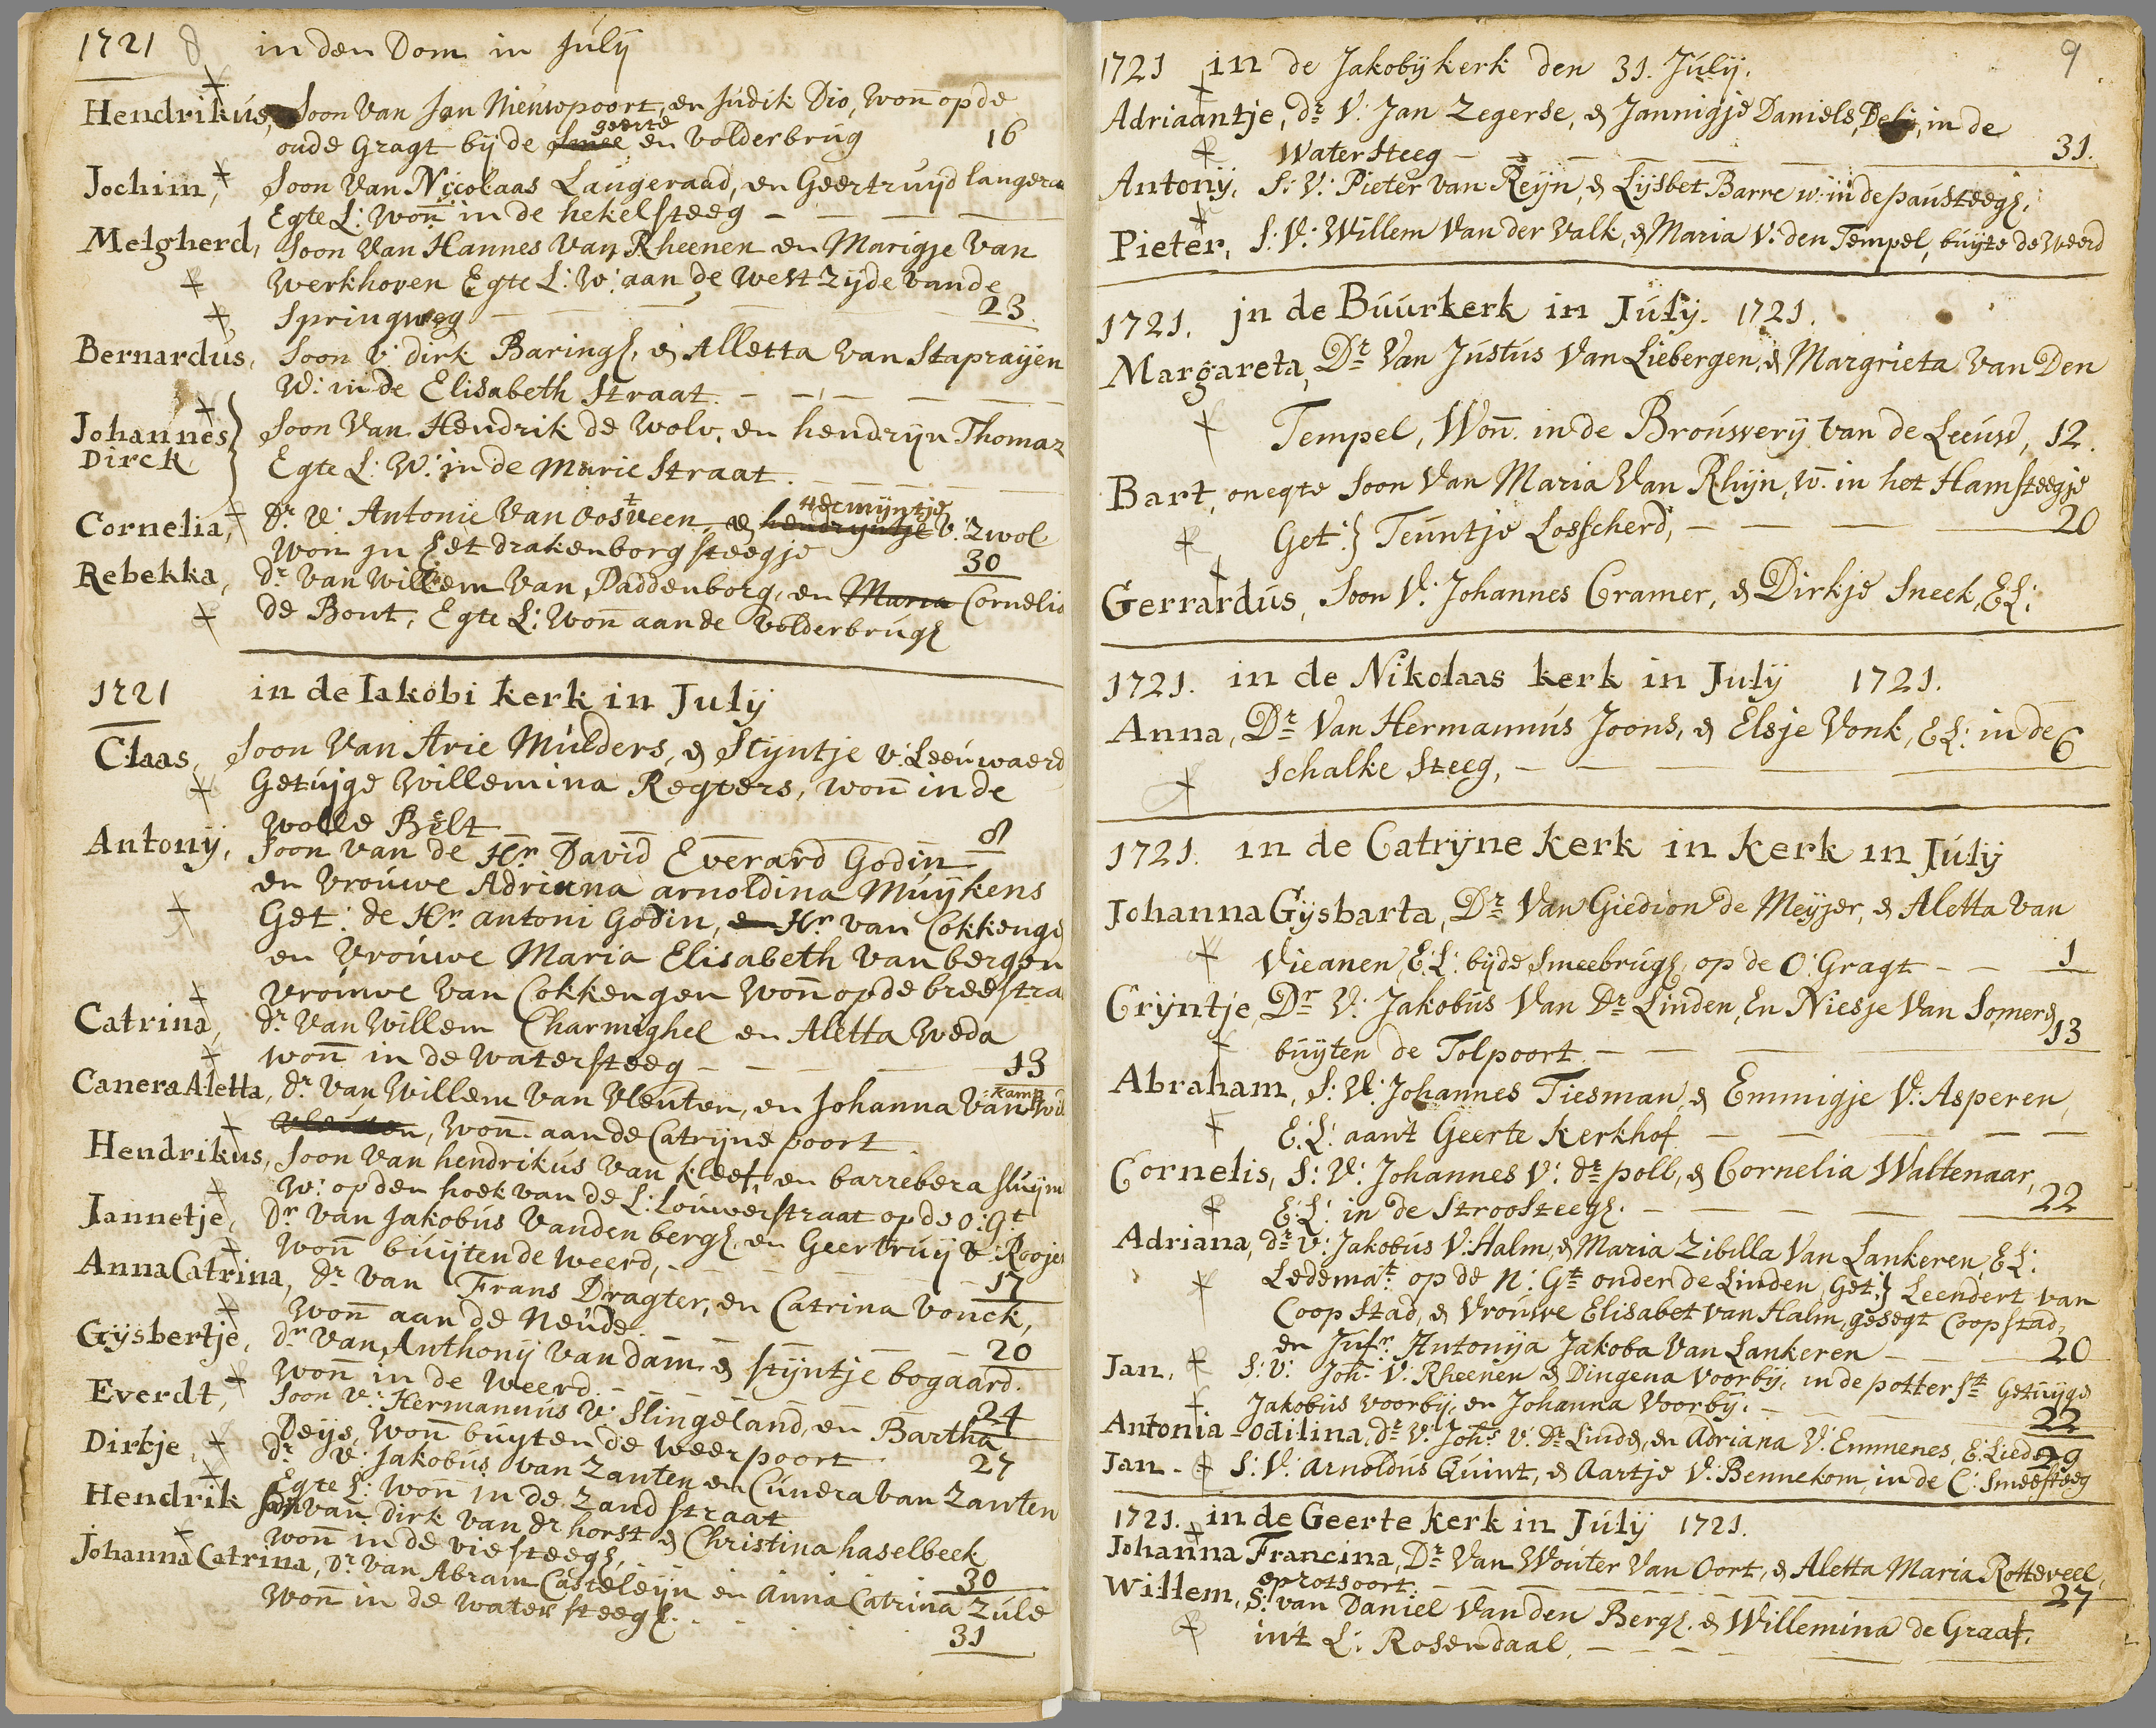 1721 8 in den Dom in Julij
Hendrikus, Soon Van Jan Nieuwpoort, en Judik Dio, Won̅ op de
geerte
oude Gragt bij de Smee en volderbrug 16
Jochim, Soon Van Nicolaas Langeraad, en Geertruijd langera
Egte L: Won̅ in de hekelsteeg
Melgherd, Soon Van Hannes Van Rheenen en Marigje Van
Werkhoven Egte L: W: aan de West Zijde van de
Springweg 23
Bernardus, Soon v: dirk Baring, & Alletta van Staprayen
W: in de Elisabeth Straat.
Johannes Soon Van Hendrik de Wolv, en hendrijn Thomaz
Dirck Egte L: W: in de Marie Straat
Hermijntje
Cornelia, Dr V: Antonie Van Oosveen & hendryntje V: Zwol
Won in het drakenborg steegje 30
Rebekka, Dr Van Willem Van Daddenborg, en Maria Cornelia
de Bout, Egte L: Won̅ aan de Volderbrug
1721 in de Iakobi kerk in Julij
Claas, Soon Van Arie Mulders, & Stijntje v: Leeuwaerd
Getuijge Willemina Regters, won̅ in de
Wolle Belt 8
Antonij, Soon van de Hr David Everard Godin
en Vrouwe Adriana arnoldina Muijkens
Get: de Hr antoni Godin, en Hr van Cokkenge
en Vrouwe Maria Elisabeth van bergen
Vrouwe van Cokkengen Won̅ op de breestra
Catrina, dr Van Willem Charmighel en Aletta Weda
won̅ in de Watersteeg 13
Canera Aletta, dr Van Willem Van Vleuten, en Johanna Van
Kamp
Vleuten, Won̅ aan de Catrijne poort
Hendrikus, Soon Van hendrikus Van Kleef en barrebera Sluijm
W: op den hoek van de L: Louwerstraat op de O: Gt
Iannetje, Dr Van Jakobus Van den berg, en Geertruij V: Rooje
Won̅ buijten de weerd, 17
Anna Catrina, Dr Van Frans Dragter, en Catrina Vonck,
Won̅ aan de Neude 20
Gijsbertje, dr Van Anthonij Van dam & stijntje bogaard.
Won̅ in de Weerd. 24
Everdt, Soon V: Hermannus V: Slingeland, en Bartha
Deijs, Won̅ buijten de weerpoort 27
Dirkje, dr V: Jakobus van Zanten en Cunera van Zanten
Egte L: Won̅ in de Zand straat
Hendrik Soon van dirk van dr horst & Christina haselbeek
won̅ in de vie steeg, 30
Johanna Catrina, Dr Van Abram Casteleijn en Anna Catrina Zule
Won̅ in de water steeg. 31
9
1721 in de Jakobij kerk den 31. Julij.
Adriaantje, dr V: Jan Zegerse, & Jannigje Daniels, in de
Water Steeg 31.
Antonij, S: V: Pieter van Reijn, & Lijsbet Barre w: in de pausteeg,
Pieter, S: V: Willem Van der Valk, & Maria V: den Tempel, buijte de Weerd
1721. jn de Buurkerk in Julij. 1721.
Margareta, Dr Van Justus Van Liebergen, & Margrieta Van Den
Tempel, Won̅ in de Brouwerij van de Leeuw, 12.
Bart, onegte Soon Van Maria Van Rhijn, W: in het Hamsteegje
Get: Teuntje Losscherd, 20
Gerrardus, Soon V: Johannes Cramer, & Dirkje Sneek, E L:
1721. in de Nikolaas kerk in Julij 1721.
Anna, Dr Van Hermannus Joons, & Elsje Vonk, E L: in de
Schalke Steeg, 6
1721. in de Catrijne kerk in kerk in Julij
Johanna Gijsbarta, Dr Van Giedion de Meijjer, & Aletta van
Vieanen E: L: bijde Smeebrug, op de O: Gragt 1
Crijntje, Dr V: Jakobus Van Dr Linden, En Niesje Van Somer
buijten de Tolpoort. 13
Abraham, S: V: Johannes Tiesman, & Emmigje V: Asperen,
E: L: aant Geerte kerkhof
Cornelis, S: V: Johannes V: dr poll, & Cornelia Waltenaar,
E: L: in de Stroosteeg. 22
Adriana, dr V: Jakobus V: Halm, & Maria Zibilla Van Lankeren, E L:
Ledemat op de N: Gt onder de Linden, Get: Leendert van
Coop Stad, & Vrouwe Elisabet van Halm, gesegt Coopstad,
en Jufr Antonija Jakoba Van Lankeren 20
Jan, S: V: Joh: V: Rheenen & Dingena Voorbij, in de potterst Getuijge
Jakobus voorbij, en Johanna Voorbij. 22
Antonia-Odilina, dr V: Johs V: Dr Linde, en Adriana V: Emmenes, E: Lied 29
Jan - S: V: Arnoldus Quint, & Aartje V: Bennekom, in de C: Smeesteeg
1721. in de Geerte kerk in Julij 1721.
Johanna Francina, Dr Van Wouter Van Oort, & Aletta Maria Rotteveel,
op rotsoort. 27
Willem, S: van Daniel Van den Berg, & Willemina de Graaf,
in't L: Rosendaal,